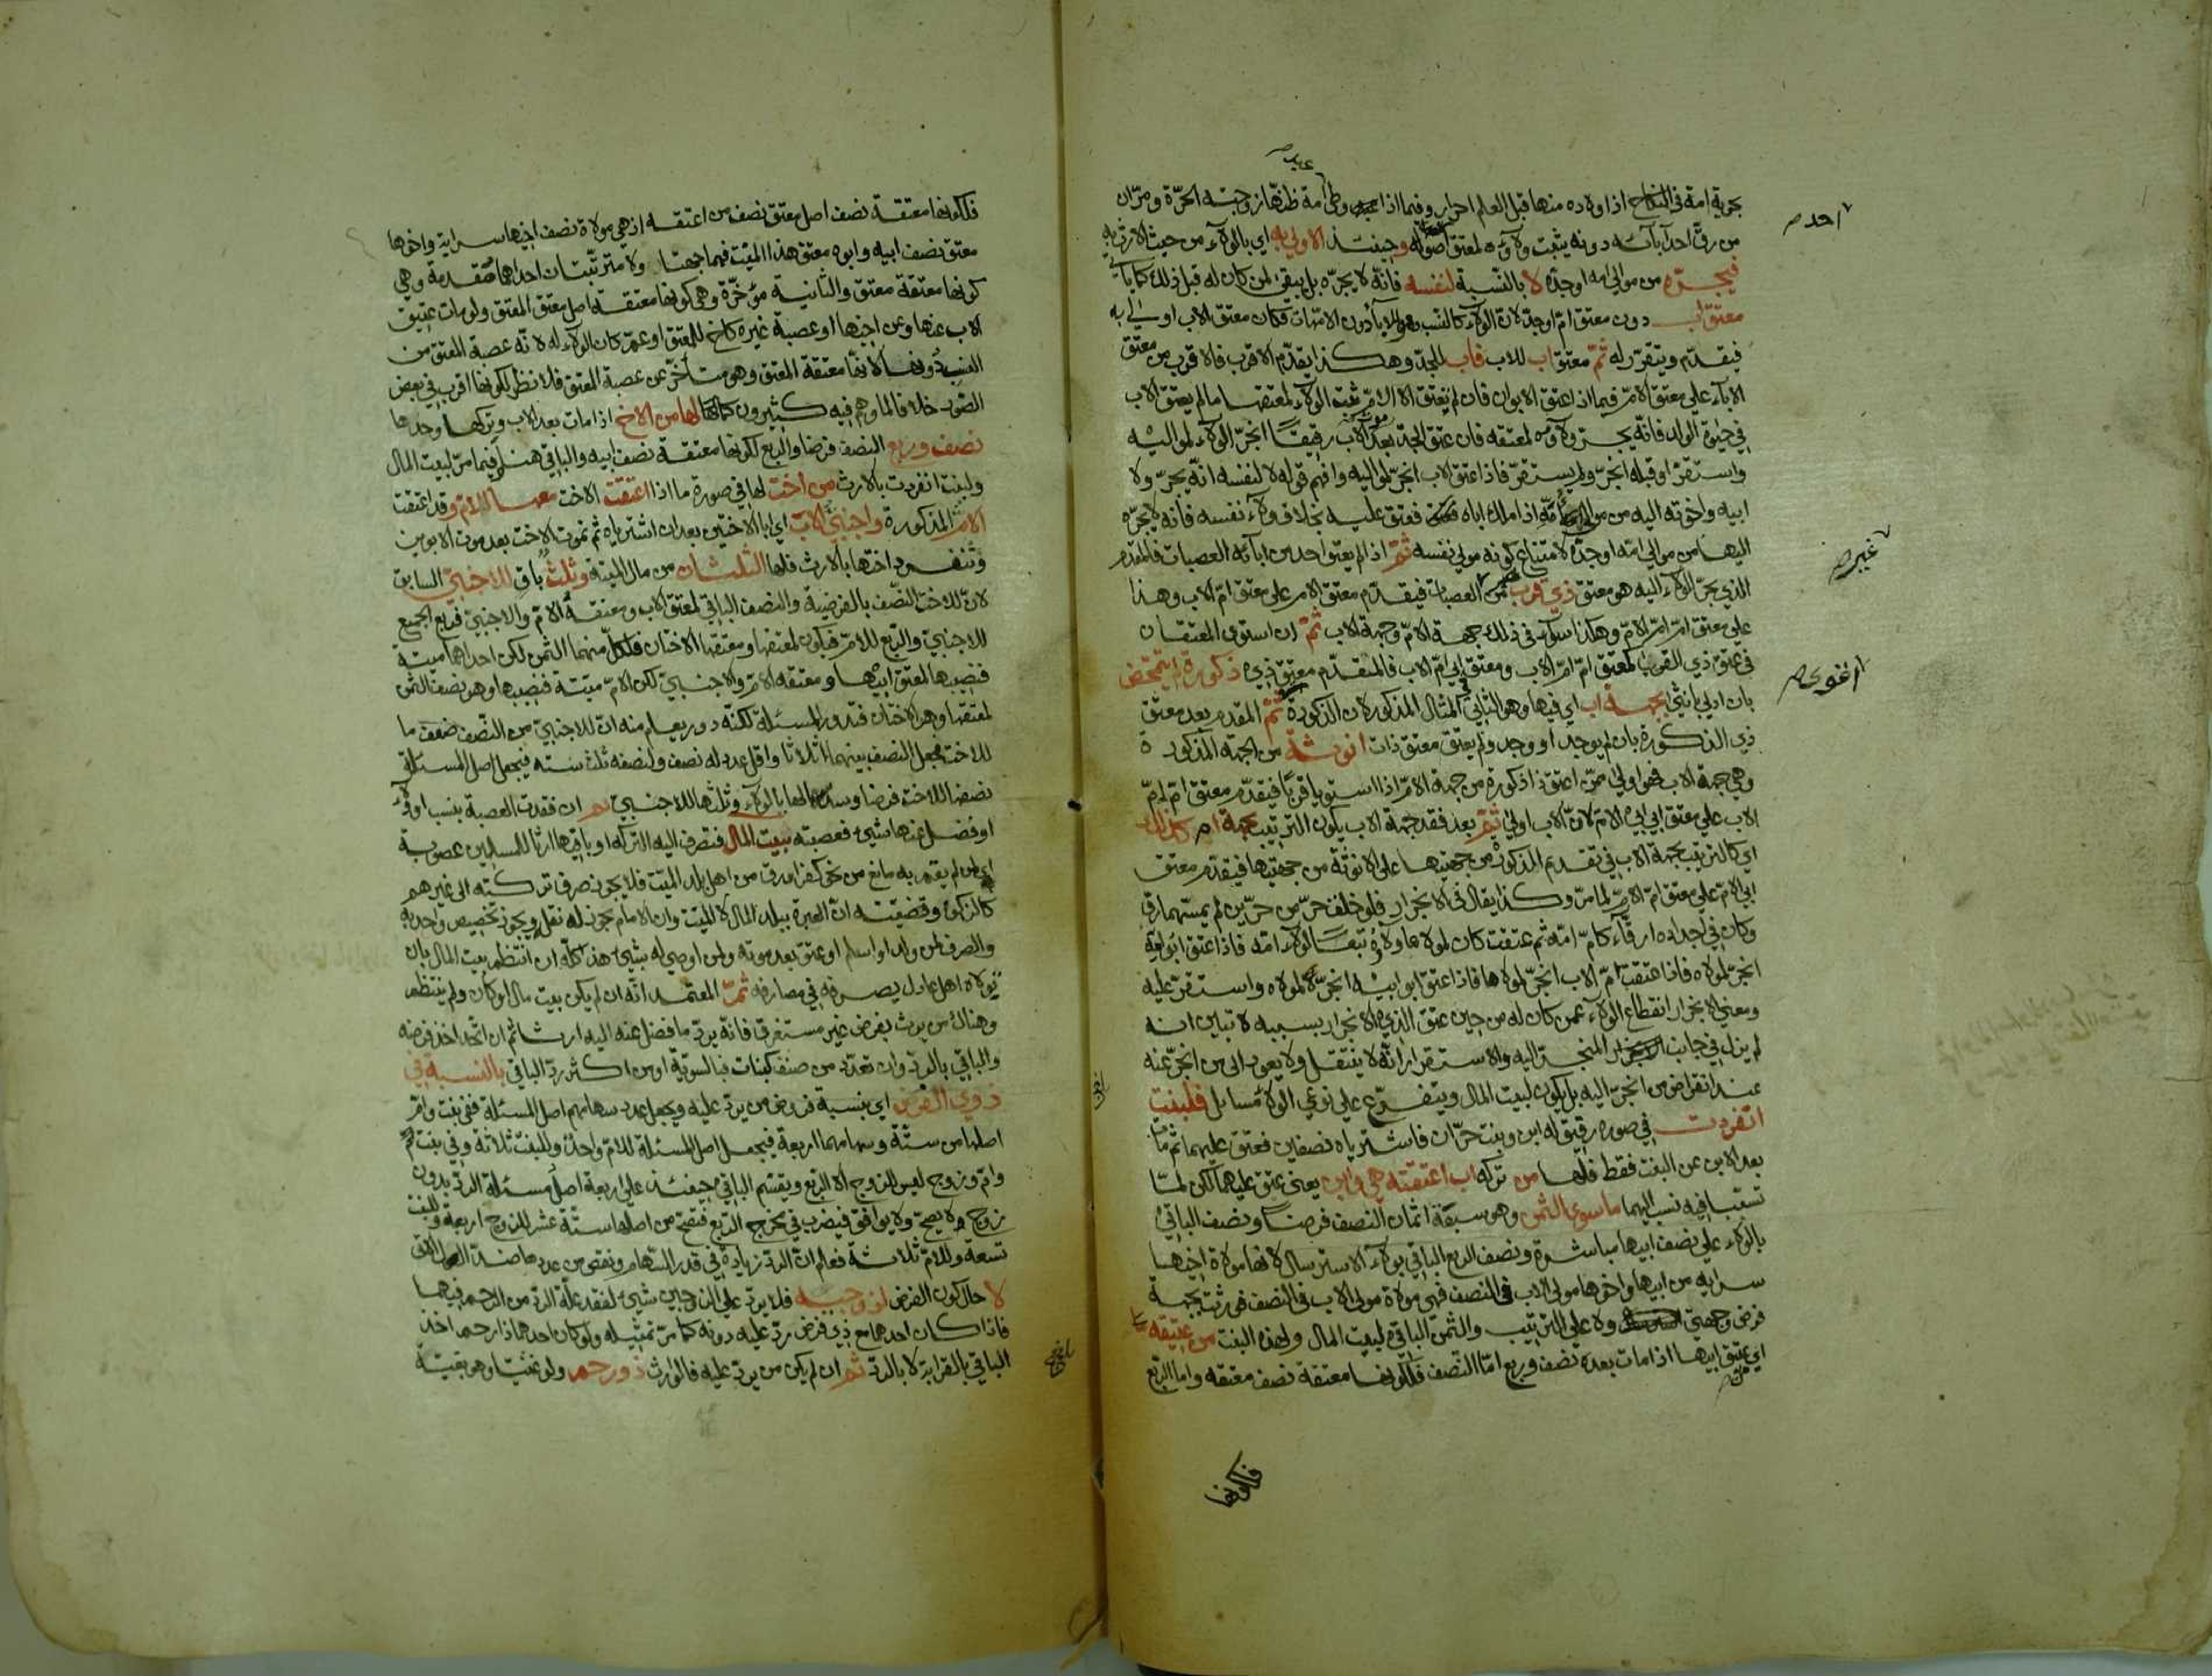 بحرية امة في النكاح اذ اولاده منها قبل العلم احرار وفيما اذا وطئ امة ظنها زوجته الحرة ومر ان
من رق احد آبائه دونه يثبت ولاؤه لمعتق اصوله وحينئذ الاولى به اي بالولاء من حيث الارث به
فيجره من موالي امه او جده لا بالنسبة لنفسه فانه لا يجره بل يبقى لمن كان له قبل ذلك كما يأتي
معتق اب دون معتق ام او جد لان الولاء كالنسب وهو للآباء دون الامهات فكان معتق الاب اولى به
فيقدم ويتقرر له ثم معتق اب للاب فاب للجد وهكذا يقدم الاقرب فالاقرب من معتق
الآباء على معتق الام فيما اذا عتق الابوان فان لم يعتق الا الام ثبت الولاء لمعتقها ما لم يعتق الاب
في حيوة الولد فانه يجر ولاؤه لمعتقه فان عتق الجد بعد موت الاب رقيقا انجر الولاء لمواليه
واستقر او قبله انجر ولم يستقر فاذا عتق الاب انجر لمواليه وافهم قوله لا لنفسه انه يجر ولاء
ابيه واخوته اليه من موالي امه اذا ملك اباه فعتق عليه بخلاف ولاء نفسه فانه لا يجره
اليها من موالي امه او جده لامتناع كونه مولى نفسه ثم اذا لم يعتق احد من آبائه العصبات فالمقدم
الذي يجر الولاء اليه هو معتق ذي قرب من العصبات فيقدم معتق الام على معتق ام الاب وهذا
على معتق ام ام الام وهكذا سواء في ذلك جهة الام وجهة الاب ثم ان استوى المعتقان
في عتق ذي القرب كمعتق ام ام الاب ومعتق ابي ام الاب فالمتقدم معتق ذي ذكورة لم يتمحض
بان ادلى بانثى بجهة اب اي فيها وهو الثاني في المثال المذكور لان الذكورة ثم المقدم بعد معتق
ذي الذكورة بان لم يوجد او وجد ولم يعتق معتق ذات انوثة من الجهة المذكورة
وهي جهة الاب فهو اولى ممن اعتق ذا ذكورة من جهة الام اذا استويا قربا فيقدم معتق ام ام
الاب على معتق ابي ابي الام لان الاب اولى ثم بعد فقد جهة الاب يكون الترتيب بجهة ام كذلك
اي كالترتيب بجهة الاب في تقديم الذكورة من جهتها على الانوثة من جهتها فيقدم معتق
ابي الام على معتق ام الام لما مر وكذا يقال في الانجرار فلو خلف حر من حرين لم يمسهما رق
وكان في اجداده ارقاء كام امه ثم عتقت كان لمولاها ولاؤه تبعا لولاء امه فاذا عتق ابو امه
انجر لمولاه فاذا عتقت ام الاب انجر لمولاها فاذا عتق ابو ابيه انجر لمولاه واستقر عليه
ومعنى الانجرار انقطاع الولاء عمن كان له من حين عتق الذي الانجرار بسببه لا تبين انه
لم يزل في جانب المنجر اليه والاستقرار انه لا ينتقل ولا يعود الى من انجر عنه
عند انقراض من انجر اليه بل يكون لبيت المال ويتفرع على نوعي الولاء مسائل فلبنت
انفردت في صورة رقيق له ابن وبنت حران فاشترياه نصفين فعتق عليهما ثم مات
بعد الابن عن البنت فقط فلها من تركة اب اعتقته هي وابن يعني عتق عليهما لكن لما
تسببا فيه نسب اليهما ما سوى الثمن وهو سبعة اثمان النصف فرضا ونصف الباقي
بالولاء على نصف ابيها مباشرة ونصف الربع الباقي بولاء الاسترسال لانها مولاة اخيها
سراية من ابيها واخوها مولى الاب في النصف فهي مولاة مولى الاب في النصف فورثت بجهة
فرض وجهتي ولاء على الترتيب والثمن الباقي لبيت المال ولهذه البنت من عتيقه
اي عتيق ابيها اذا مات بعده نصف وربع اما النصف فلكونها معتقة نصف معتقه واما الربع
فلكونها
عبده
احد صح
غيره صح
اقوى صح
فلكونها معتقة نصف اصل معتق نصف من اعتقه اذ هي مولاة نصف اخيها سراية واخوها
معتق نصف ابيه وابوه معتق هذا الميت فهما جهتا ولاء مترتبتان احداهما مقدمة وهي
كونها معتقة معتق والثانية مؤخرة وهي كونها معتقة اصل معتق المعتق ولو مات عتيق
الاب عنها وعن اخيها او عصبة غيره كاخ للمعتق او عم كان الولاء له لانه عصبة المعتق من
النسب دونها لانها معتقة المعتق وهو متأخر عن عصبة المعتق فلا نظر لكونها اقرب في بعض
الصور خلافا لما وهم فيه كثيرون كما لها من الاخ اذا مات بعد الاب وتركها وحدها
نصف وربع النصف فرضا والربع لكونها معتقة نصف ابيه والباقي هنا وفيما مر لبيت المال
ولبنت انفردت بالارث من اخت لها في صورة ما اذا اعتقت الاخت معها للام وقد اعتقت
الام المذكورة واجنبي الاب اي ابا الاختين بعد ان اشترياه ثم تموت الاخت بعد موت الابوين
وتنفرد اختها بالارث فلها الثلثان من مال الميتة وثلث باق للاجنبي السابق
لان للاخت النصف بالفرضية والنصف الباقي لمعتق الاب ومعتقه الام والاجنبي فربع الجميع
للاجنبي والربع للام فيكون لمعتقها ومعتقها الاختان فلكل منهما الثمن لكن احداهما ميتة
فنصيبها لمعتق ابيها ومعتقه الام والاجنبي لكن الام ميتة فنصيبها وهو نصف الثمن
لمعتقها وهو الاختان فتدور المسئلة لكنه دور يعلم منه ان للاجنبي من النصف ضعف ما
للاخت فجعل النصف بينهما اثلاثا واقل عدد له نصف ولنصفه ثلث ستة فيجعل اصل المسئلة
نصفها للاخت فرضا وسدسها لها بالولاء وثلثها للاجنبي ثم ان فقدت العصبة بنسب او ولاء
او فضل عنها شيئ فعصبته ببيت المال فتصرف اليه التركة او باقيها ارثا للمسلمين عصوبة
لمن لم يقم به مانع من نحو كفر او رق من اهل بلد الميت فلا يجوز صرف تركته الى غيرهم
كالزكوة وقضيته ان العبرة ببلد المال لا الميت وان الامام يجوز له نقل ويجوز تخصيص واحد به
والصرف لمن ولد او اسلم او عتق بعد موته ولمن اوصى له بشيئ هذا كله ان انتظم بيت المال بان
تولاه اهل عادل يصرفه في مصارفه ثم المعتمد انه ان لم يكن بيت مال او كان ولم ينتظم
وهناك من يرث بفرض غير مستغرق فانه يرد ما فضل عنه اليه ارثا ثم ان اتحد اخذ فرضه
والباقي بالرد وان تعدد من صنف كبنات فبالسوية او من اكثر رد الباقي بالنسبة في
ذوي الفرض اي بنسبة فروض من يرد عليه ويجعل عدد سهامهم اصل المسئلة ففي بنت وام
اصلها من ستة وسهامهما اربعة فيجعل اصل المسئلة للام واحد وللبنت ثلاثة وفي بنت
وام وزوج ليس للزوج الا الربع ويقسم الباقي حينئذ على اربعة اصل مسئلة الرد بدون
زوج ولا يصح ولا يوافق فيضرب في مخرج الربع فتصح من اصلها ستة عشر للزوج اربعة وللبنت
تسعة وللام ثلاثة فعلم ان الرد زيادة في قدر السهام ونقص من عددها ضد العول الآتي
لا حال كون الفرض لزوجية فلا يرد على الزوجين شيئ لفقد علة الرد من الرحم فيهما
فاذا كان احدهما مع ذي فرض رد عليه دونه كما مر تمثيله ولو كان احدهما ذا رحم اخذ
الباقي بالقرابة لا بالرد ثم ان لم يكن من يرد عليه فالوارث ذو رحم ولو غنيا وهو بقية